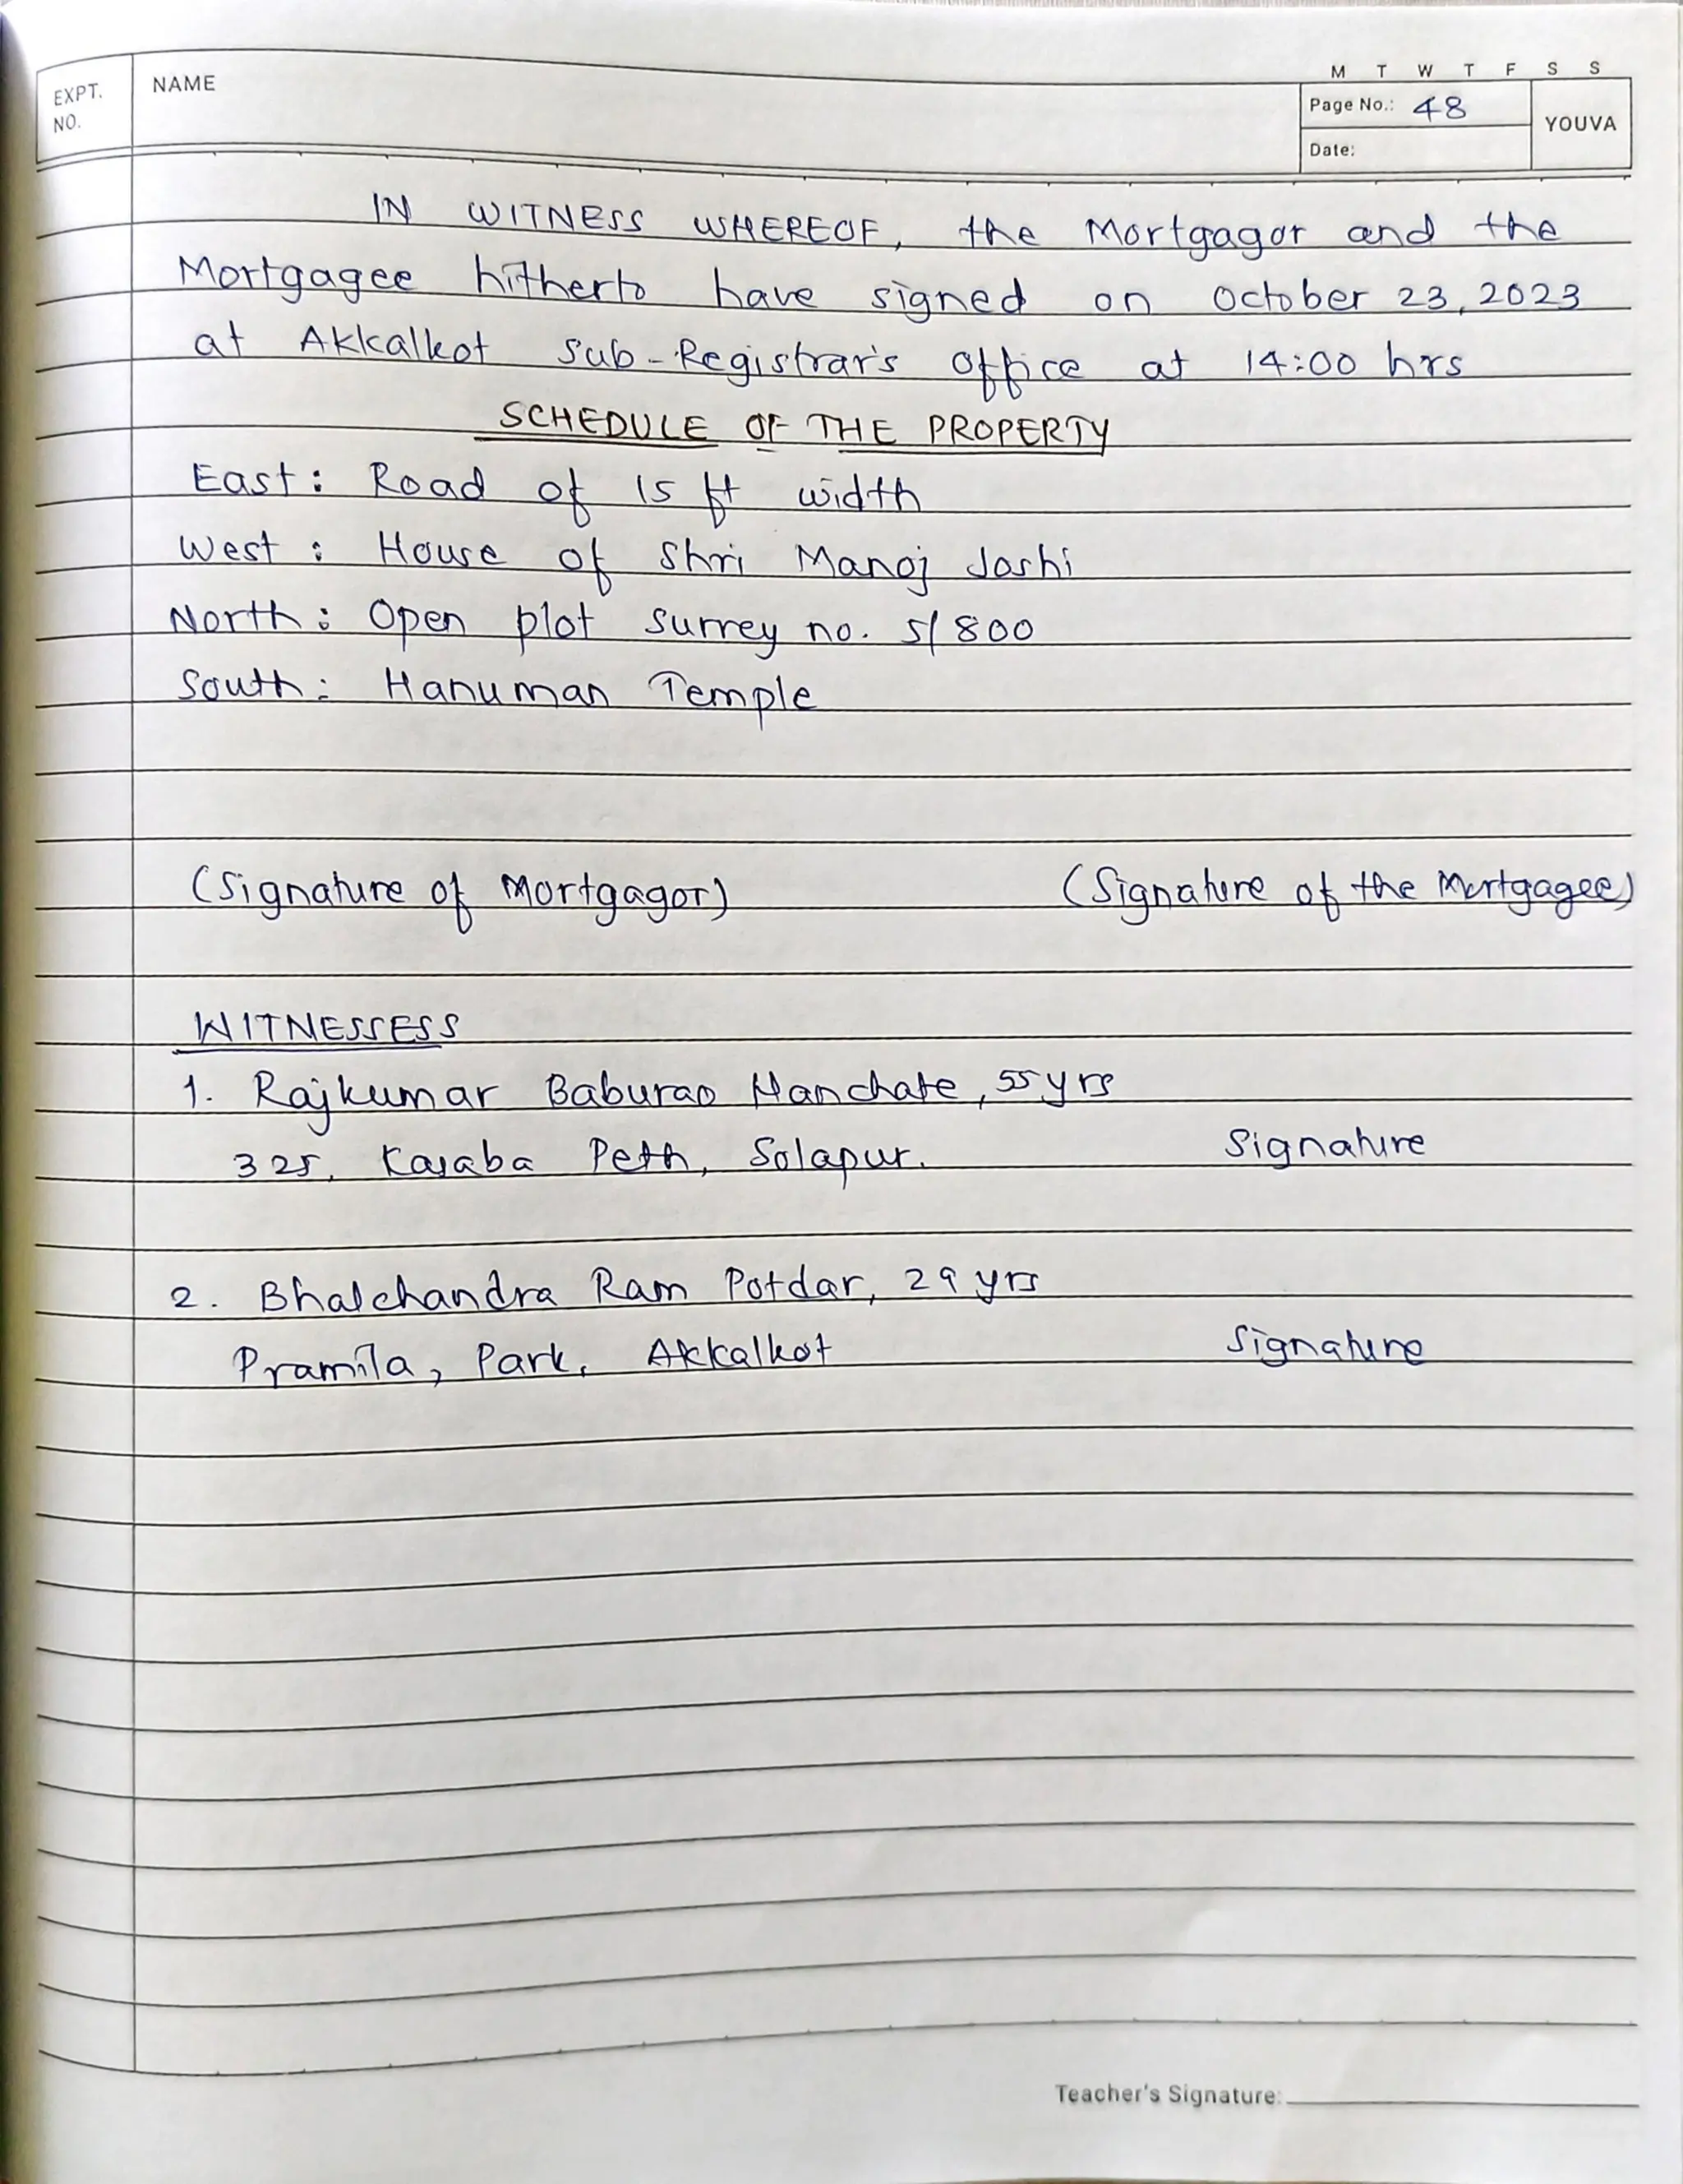 M T W T F S S
EXPT. NO.
NAME
Page No.: 48
Date:
YOUVA
IN WITNESS WHEREOF, the Mortgagor and the
Mortgagee hitherto have signed on October 23, 2023
at Akkalkot Sub-Registrar's office at 14:00 hrs
SCHEDULE OF THE PROPERTY
East: Road of 15 ft width
West: House of Shri Manoj Joshi
North: Open plot Surrey no. 5/800
South: Hanuman Temple
(Signature of Mortgagor) (Signature of the Mortgagee)
WITNESSESS
1. Rajkumar Baburao Manchate, 55 yrs
325, Kasaba Peth, Solapur. Signature
2. Bhalchandra Ram Potdar, 29 yrs
Pramila, Park, Akkalkot Signature
Teacher's Signature: